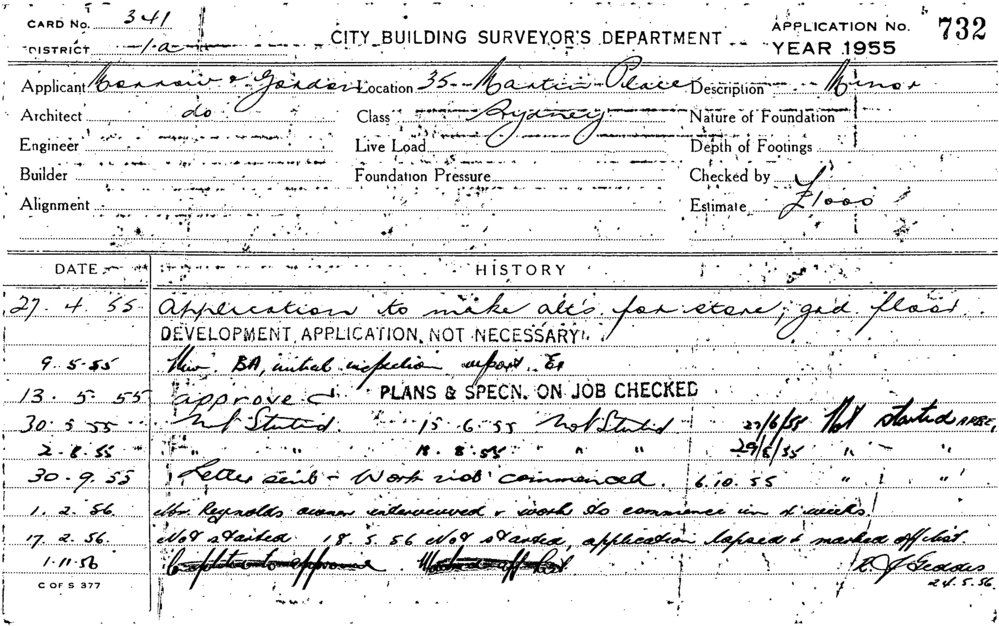 CARD No. 341
DISTRICT 1a
CITY BUILDING SURVEYOR'S DEPARTMENT
APPLICATION No. 732
YEAR 1955
Applicant Morrow & Gordon Location 35 Martin Place Description Minor
Architect do Class Sydney Nature of Foundation
Engineer Live Load Depth of Footings
Builder Foundation Pressure Checked by
Alignment Estimate £1000
DATE HISTORY
27. 4. 55 Application to make alts for store, grd floor
DEVELOPMENT APPLICATION NOT NECESSARY
9. 5. 55 BA, initial inspection report.
13. 5. 55 approved PLANS & SPECN. ON JOB CHECKED
30. 5. 55 Not Started. 15. 6. 55 Not Started 27/6/55 Not started
2. 8. 55 " " 18. 8. 55 " " 29/8/55 " "
30. 9. 55 Letter sent - Work not commenced. 6.10.55 " "
1. 2. 56 Mr. Reynolds owner interviewed & work to commence in weeks
17. 2. 56. Not started. 18. 5. 56 Not started, application lapsed & marked off list
1.11.56 Completion to approval Marked off list
Geddes
24.5.56.
C OF S 377